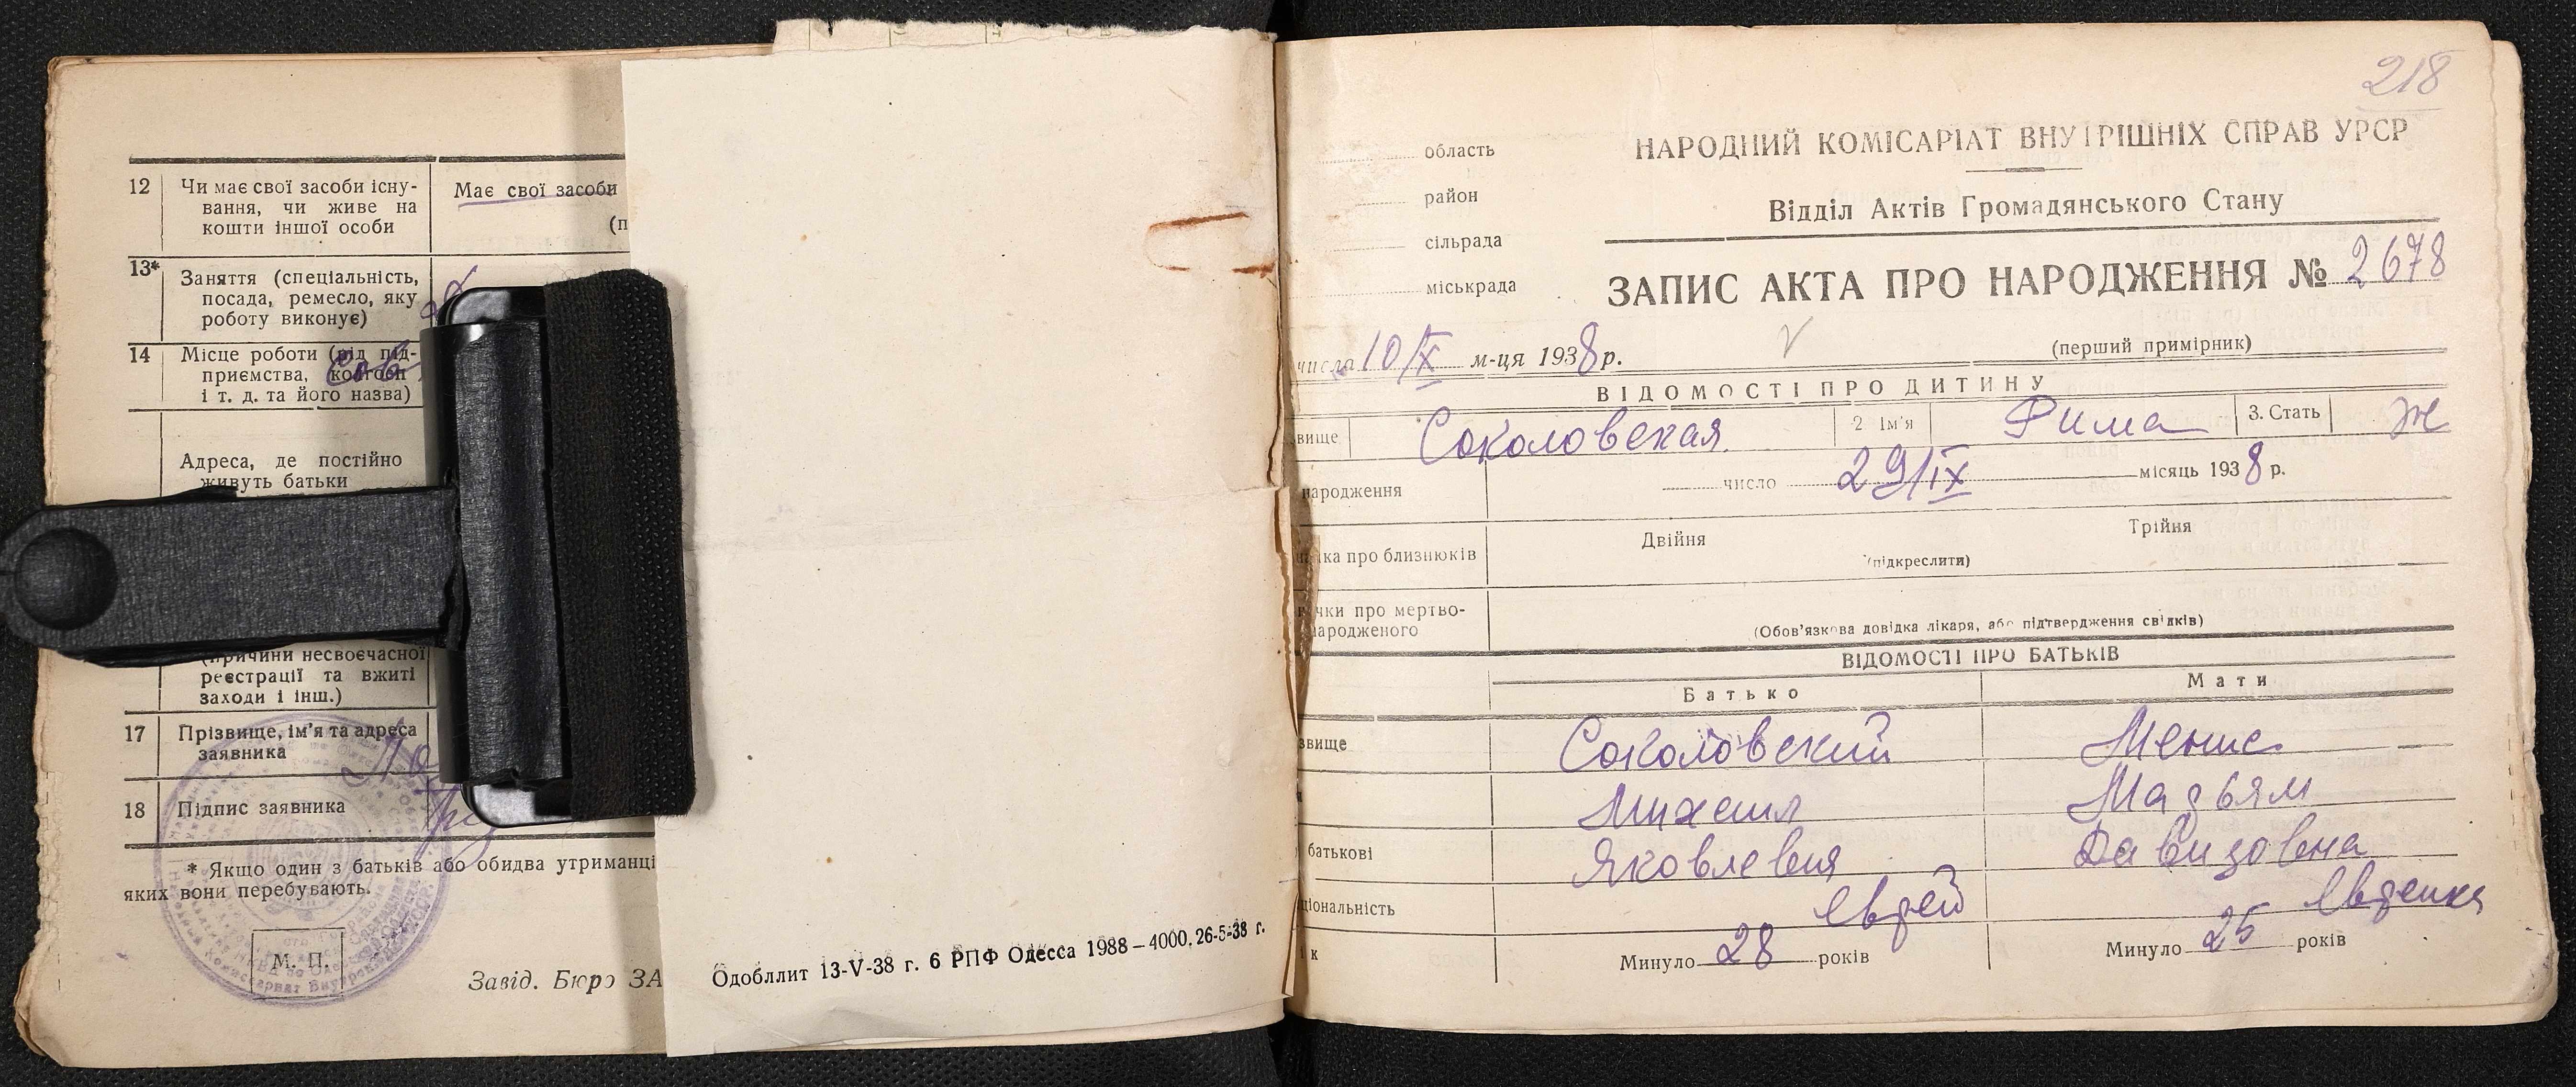 12 Чи має свої засоби існу-
вання, чи живе на
кошти іншої особи
Має свої засоби
(п
13* Заняття (спеціальність,
посада, ремесло, яку
роботу виконує)
14 Місце роботи (рід під-
приємства, колгосп
і т. д. та його назва)
Адреса, де постійно
живуть батьки
(причини несвоєчасної
реєстрації та вжиті
заходи і інш.)
17 Прізвище, ім'я та адреса
заявника
18 Підпис заявника
* Якщо один з батьків або обидва утриманці
яких вони перебувають.
М. П.
Завід. Бюро ЗА
Одобллит 13-V-38 г. 6 РПФ Одесса 1988–4000. 26-5-38 г.
218
область
район
сільрада
міськрада
НАРОДНИЙ КОМІСАРІАТ ВНУТРІШНІХ СПРАВ УРСР
Відділ Актів Громадянського Стану
ЗАПИС АКТА ПРО НАРОДЖЕННЯ № 2678
числа 10/X м-ця 1938 р.
(перший примірник)
ВІДОМОСТІ ПРО ДИТИНУ
звище Соколовская 2 Ім'я Рима 3. Стать Ж
народження число 29/IX місяць 1938 р.
ка про близнюків Двійня Трійня
(підкреслити)
чки про мертво-
народженого
(Обов'язкова довідка лікаря, або підтвердження свідків)
ВІДОМОСТІ ПРО БАТЬКІВ
Батько Мати
звище Соколовский
Михаил
батькові Яковлевич Давидовна
ціональність еврей еврейка
к Минуло 28 років Минуло 25 років